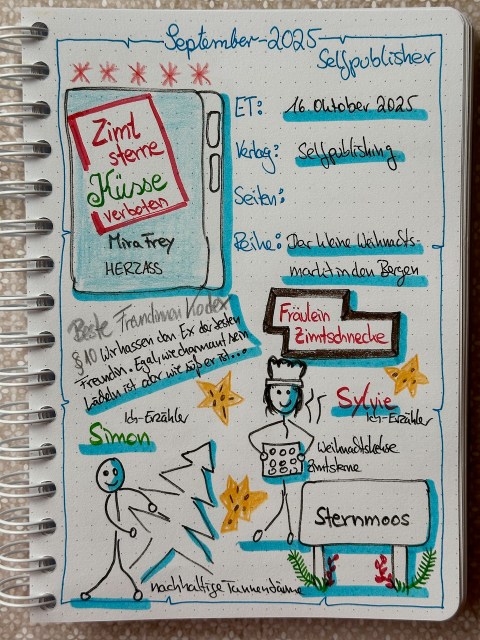 September-2025
Selfpublisher
Zimt
sterne
Küsse
verboten
Mira Frey
HERZASS
ET: 16. Oktober 2025
Verlag: Selfpublishing
Seiten:
Reihe: Der kleine Weihnachts-
markt in den Bergen
Beste Freundinnen Kodex
§10 Wir hassen den Ex der besten
Freundin. Egal, wie charmant sein
Lächeln ist oder wie süß er ist...
Fräulein
Zimtschnecke
Ich-Erzähler
Simon
Sylvie
Ich-Erzähler
Weihnachtskekse
Zimtsterne
Sternmoos
nachhaltige Tannenbäume